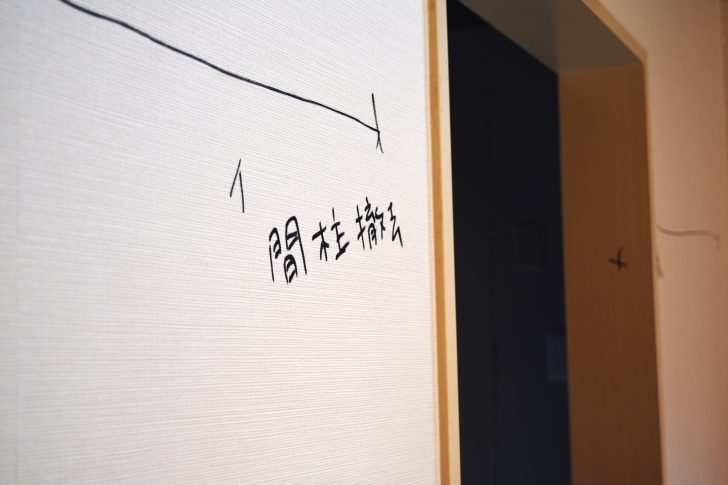 間柱撤去